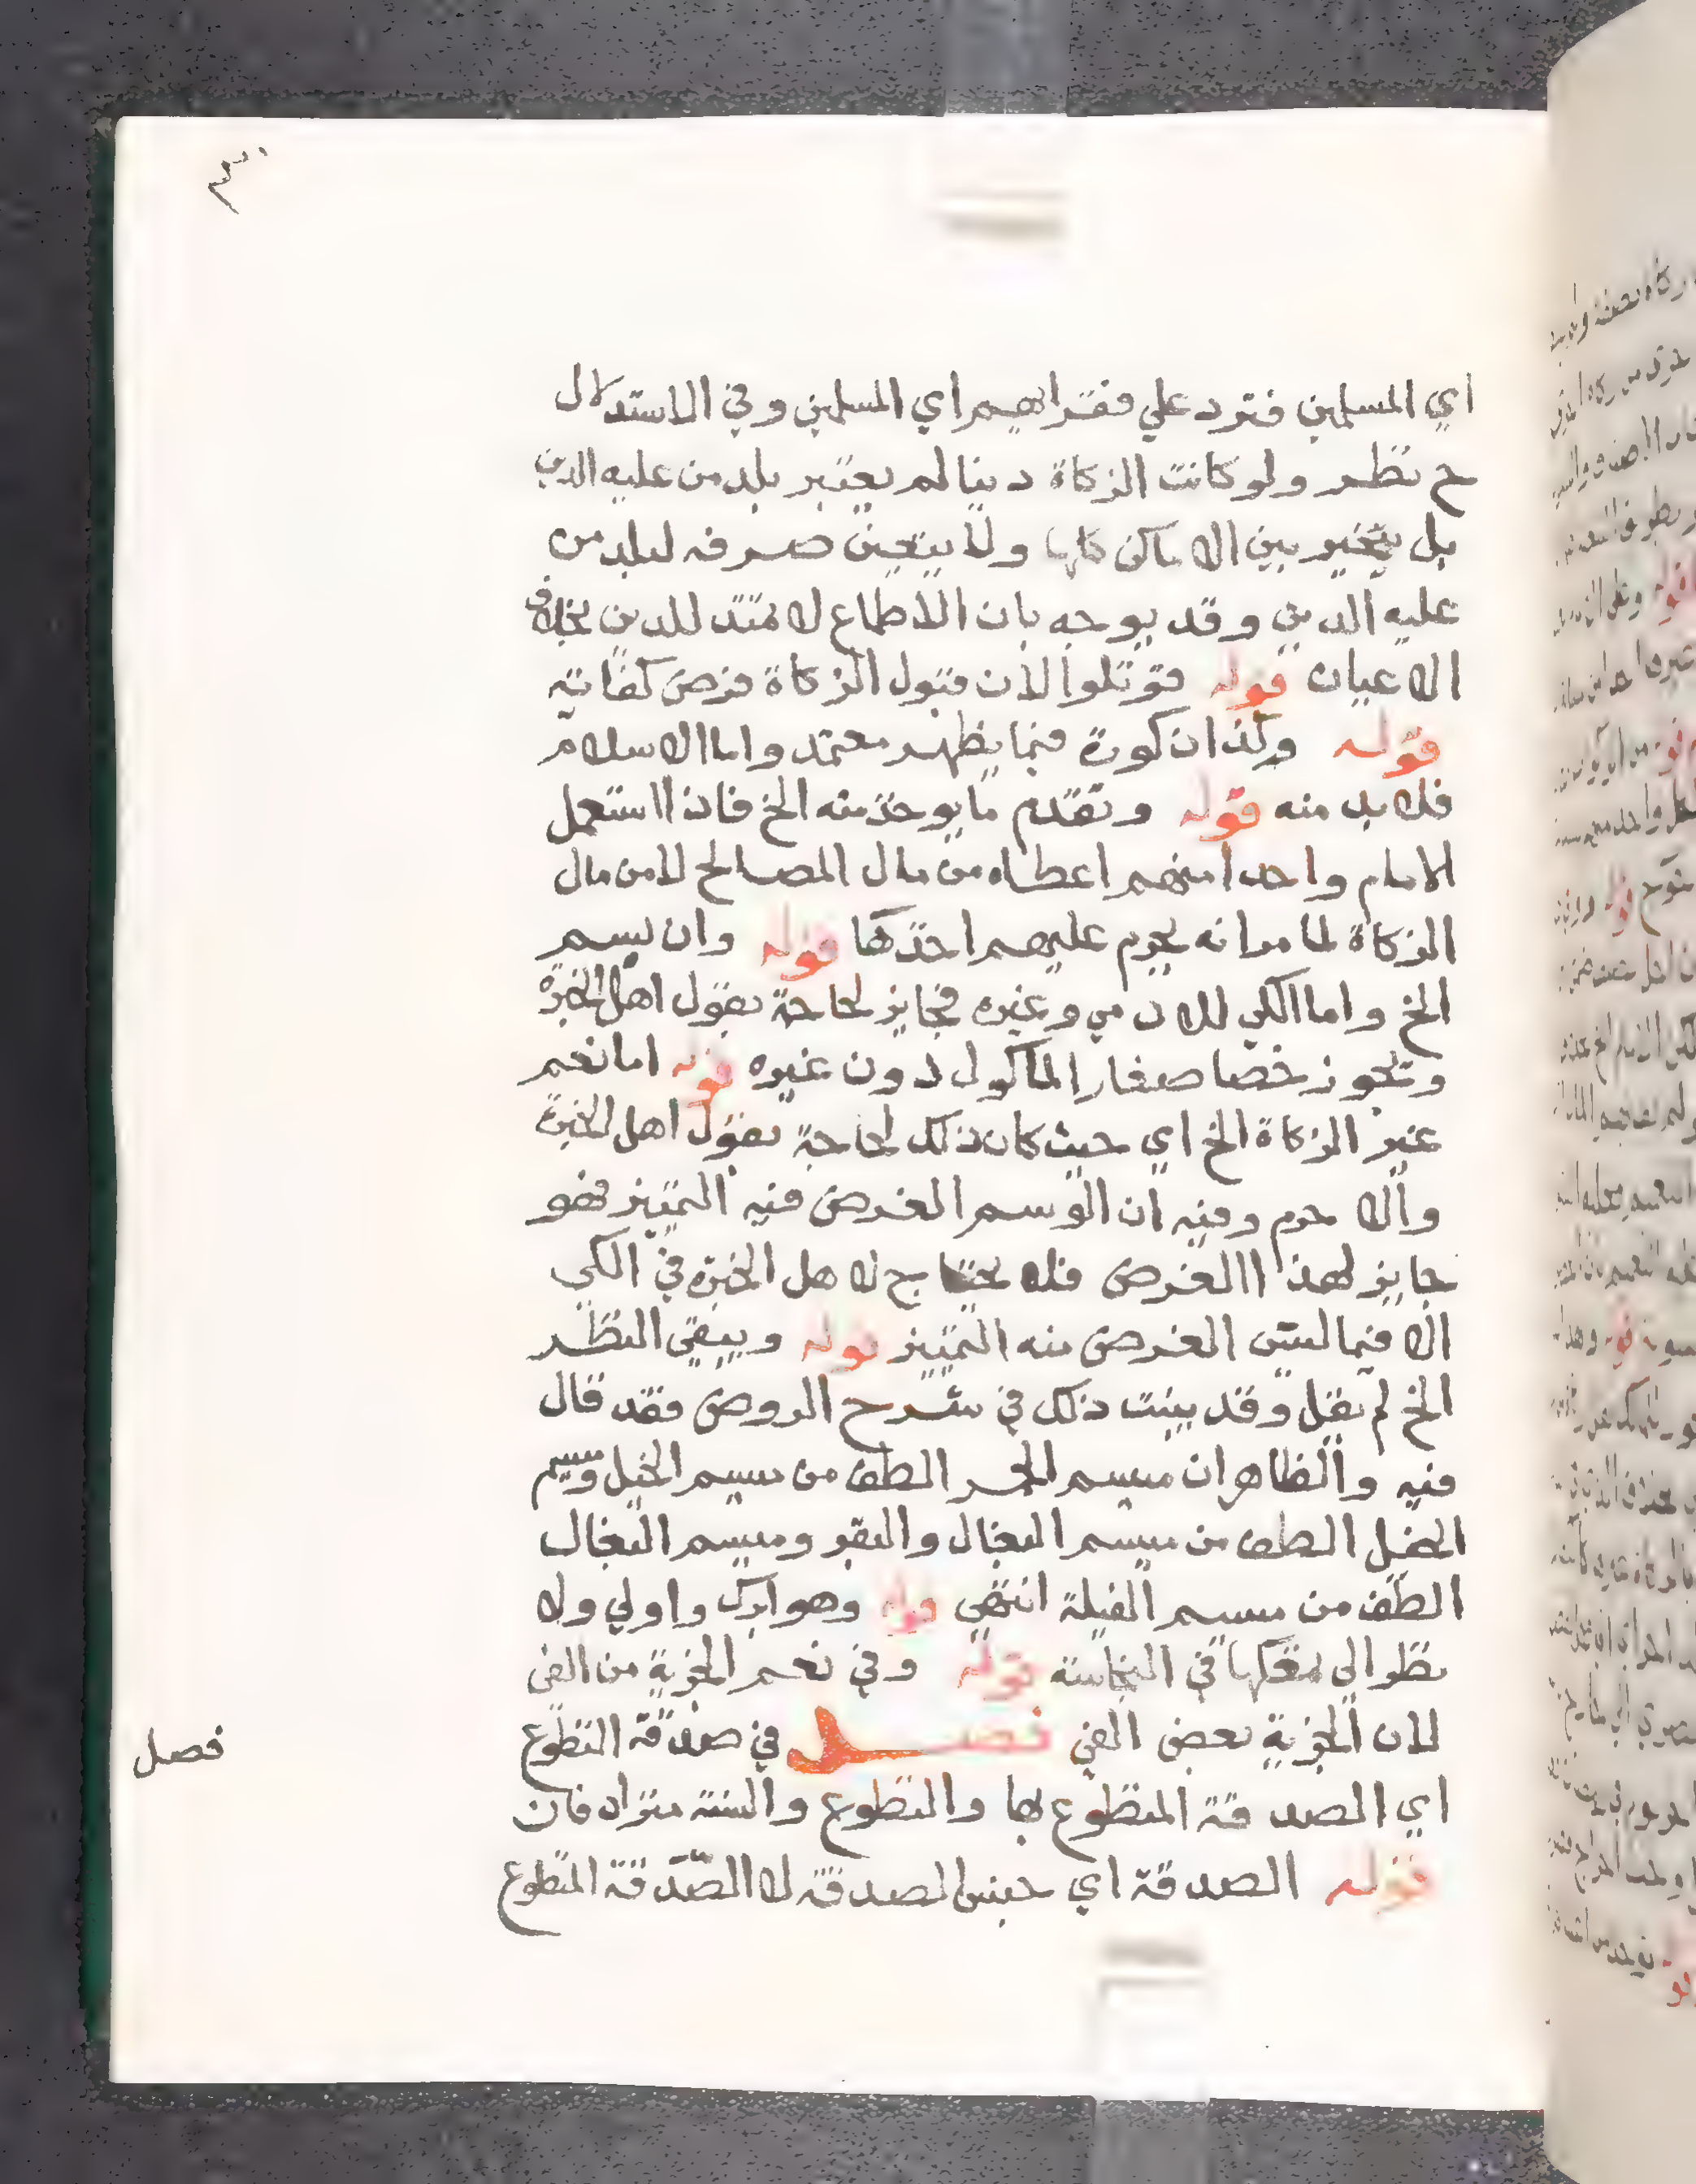 اي المسلمين فترد علي فقرايهم اي المسلمين وفي الاستدلال
ح نظر ولو كانت الزكاة دينا لم يعتبر بلد من عليه الدين
بل يتخير بين الاماكن كلها ولا يتعين صرفه لبلد من
عليه الدين وقد يوجه بان الاطماع لا تمتد للدين بخلاف
الاعيان قوله قوتلوا لان قبول الزكاة فرض كفاية
قوله وكذا ذكورة فيما يظهر معتمد واما الاسلام
فلا بد منه قوله وتقدم ما يوخذ منه الخ فاذا استعمل
الامام واحدا منهم اعطاه من مال المصالح لا من مال
الزكاة لما مر انه يحرم عليهم اخذها قوله وان يسم
الخ واما الكي للادمي وغيره فجايز لحاجة بقول اهل الخبرة
وتجوز خصا صغار الماكول دون غيره قوله اما نعم
غير الزكاة الخ اي حيث كان ذلك لحاجة بقول اهل الخبرة
والا حرم وفيه ان الوسم الغرض فيه التمييز فهو
جايز لهذا الغرض فلا يحتاج لاهل الخبرة في الكي
الا فيما ليس الغرض منه التمييز قوله ويبقي النظر
الخ لم يقل وقد بينت ذلك في شرح الروض فقد قال
فيه والظاهر ان ميسم الحمر الطف من ميسم الخيل وميسم
الخيل الطف من ميسم البغال والبقر وميسم البغال
الطف من ميسم الفيلة انتهي قوله وهو ابرك واولي ولا
نظر الي تمعكها في النجاسة قوله وفي نعم الجزية من الفي
لان الجزية بعض الفي فصل في صدقة التطوع
اي الصدقة المتطوع بها والتطوع والسنة مترادفان
قوله الصدقة اي جنس الصدقة لا الصدقة المتطوع
فصل